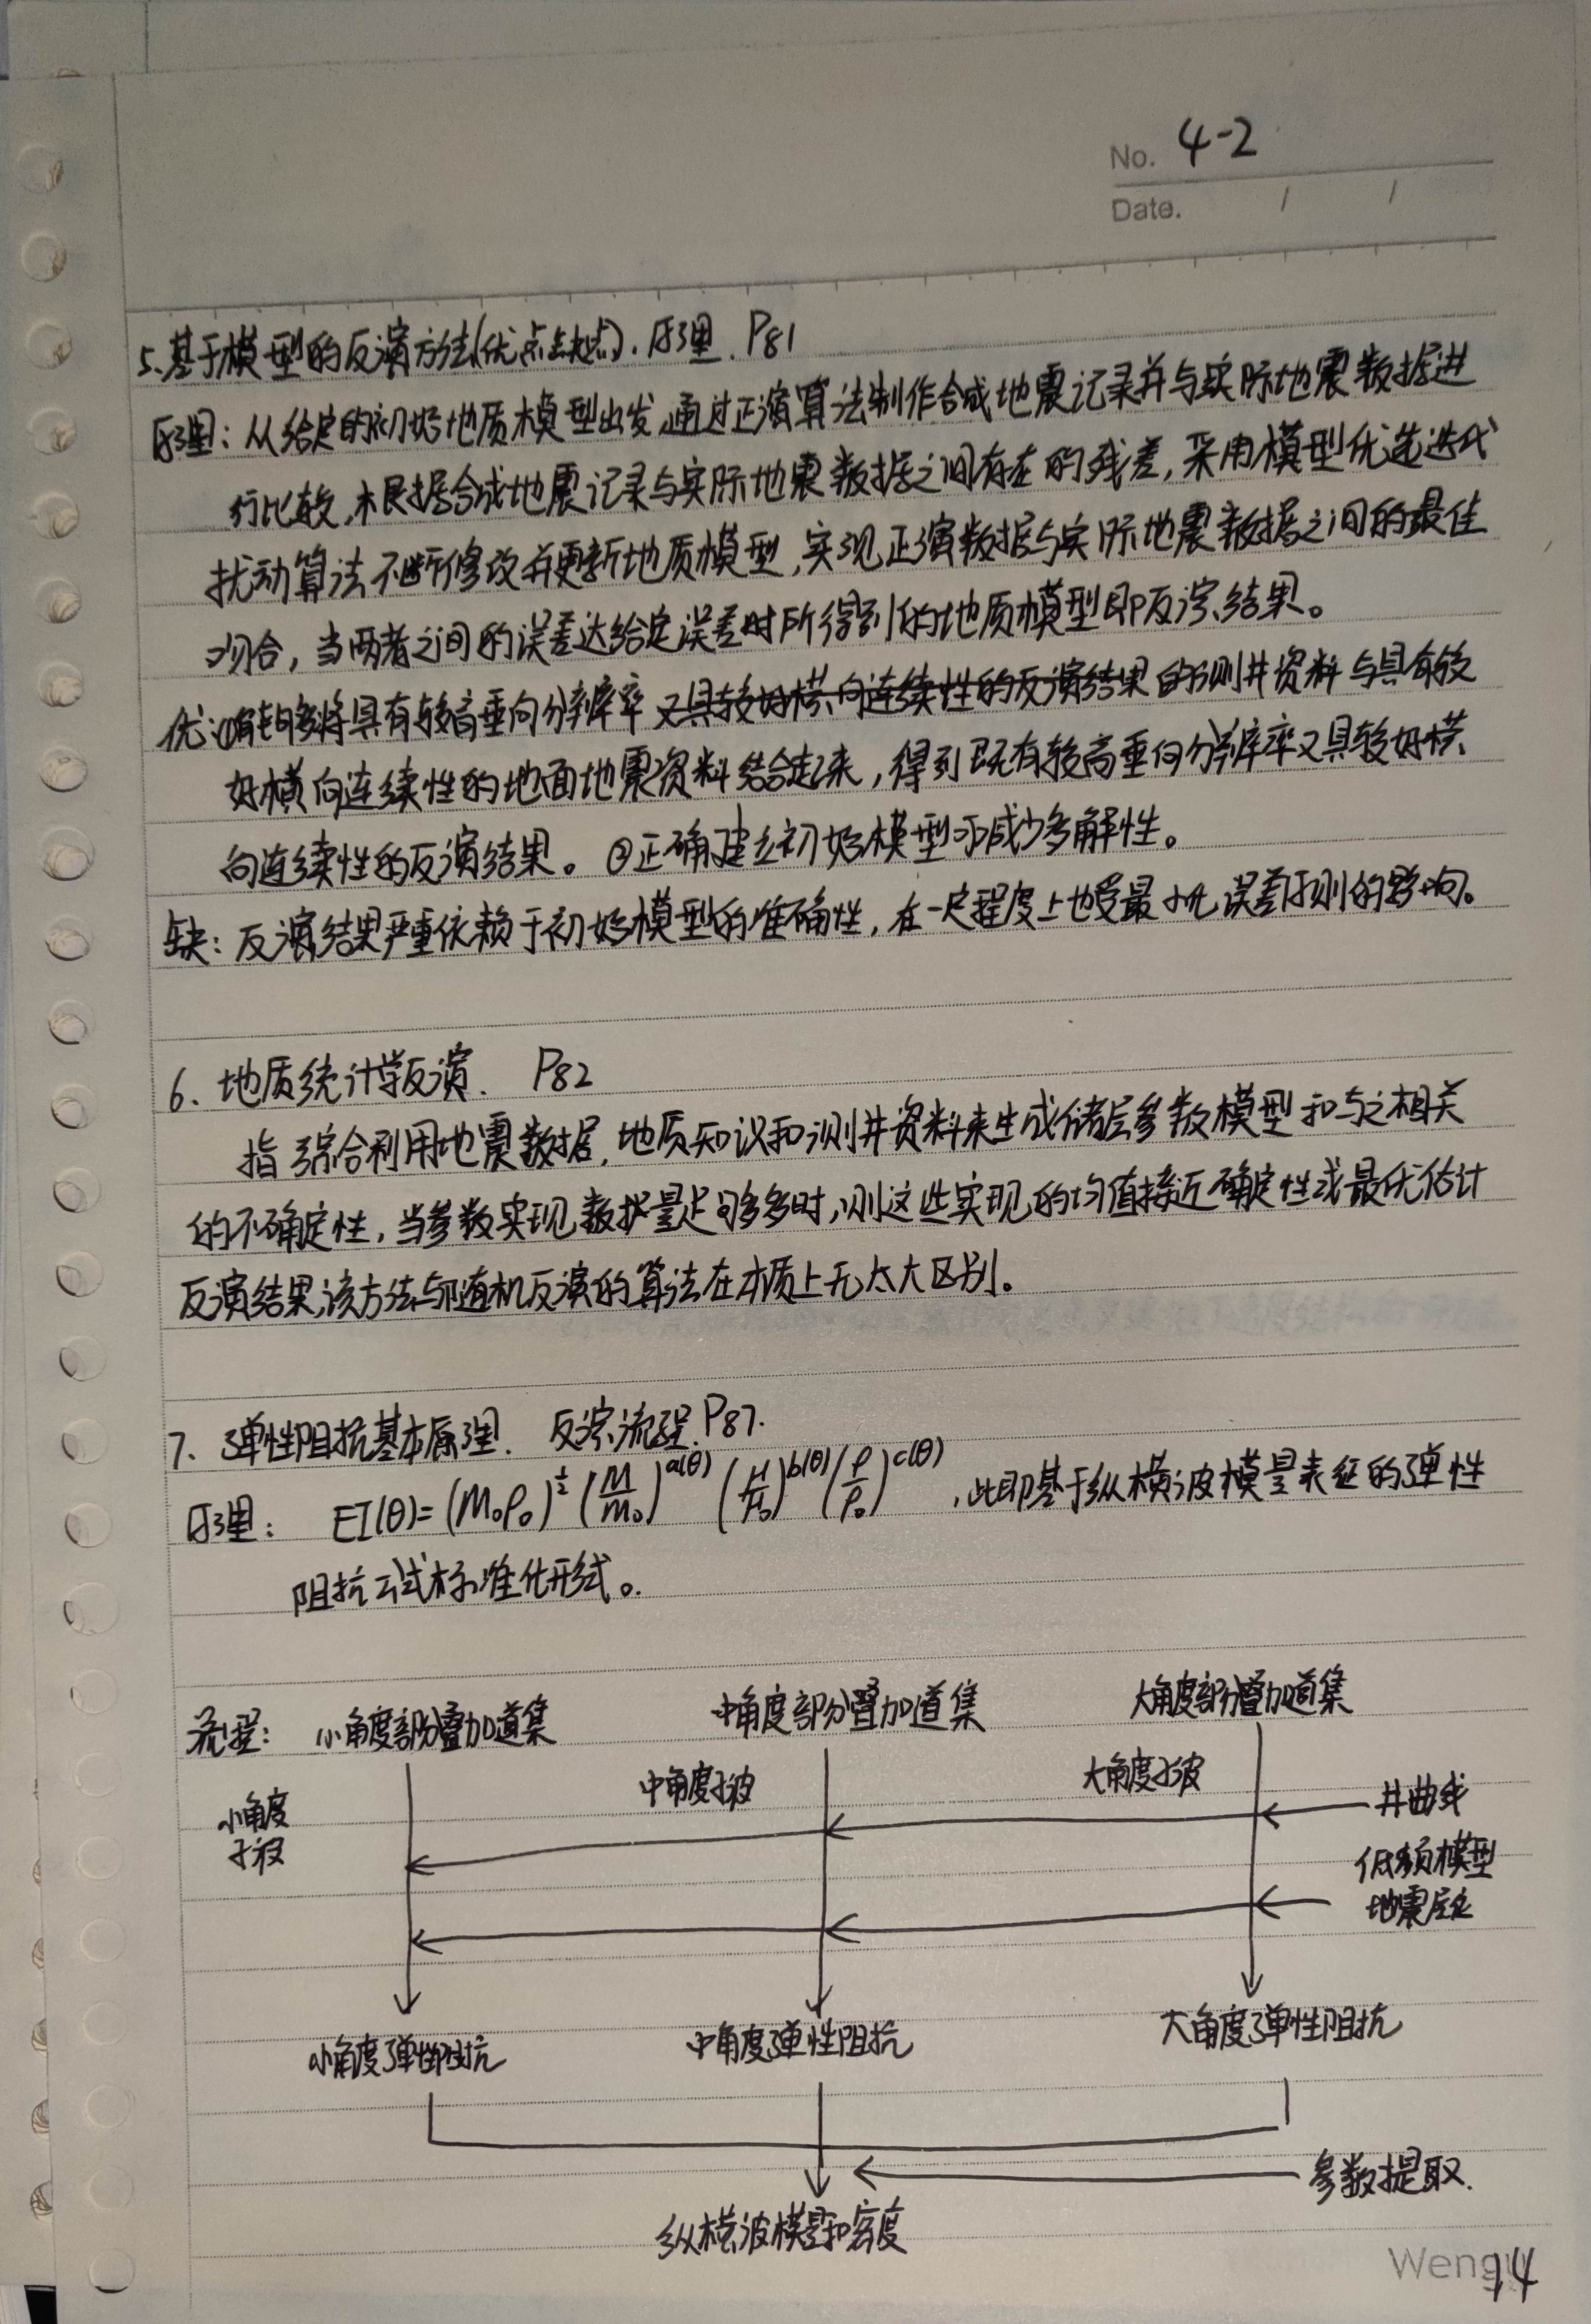 No. 4-2
Date. / /
5. 基于模型的反演方法(优点缺点). 原理. P81
原理: 从给定的初始地质模型出发,通过正演算法制作合成地震记录并与实际地震数据进
行比较,根据合成地震记录与实际地震数据之间存在的残差,采用模型优选迭代
扰动算法不断修改并更新地质模型,实现正演数据与实际地震数据之间的最佳
吻合,当两者之间的误差达给定误差时所得到的地质模型即反演结果。
优: ①能够将具有较高垂向分辨率又具较好横向连续性的反演结果的测井资料与具有较
好横向连续性的地面地震资料结合起来,得到既有较高垂向分辨率又具较好横
向连续性的反演结果。②正确建立初始模型可减少多解性。
缺: 反演结果严重依赖于初始模型的准确性,在一定程度上也受最小化误差原则的影响。
6. 地质统计学反演. P82
指综合利用地震数据,地质知识和测井资料来生成储层参数模型和与之相关
的不确定性,当参数实现数据量足够多多时,则这些实现的均值接近确定性或最优估计
反演结果,该方法与随机反演的算法在本质上无太大区别。
7. 弹性阻抗基本原理. 反演流程. P87.
原理: EI(θ)=(M₀ρ₀)^½ (M/M₀)^a(θ) (μ/μ₀)^b(θ) (ρ/ρ₀)^c(θ) ,此即基于纵横波模量表征的弹性
阻抗公式标准化形式。
流程: 小角度部分叠加道集 中角度部分叠加道集 大角度部分叠加道集
小角度
子波
中角度子波 大角度子波
井曲线
低频模型
地震层位
小角度弹性阻抗 中角度弹性阻抗 大角度弹性阻抗
参数提取.
纵横波模量和密度
14